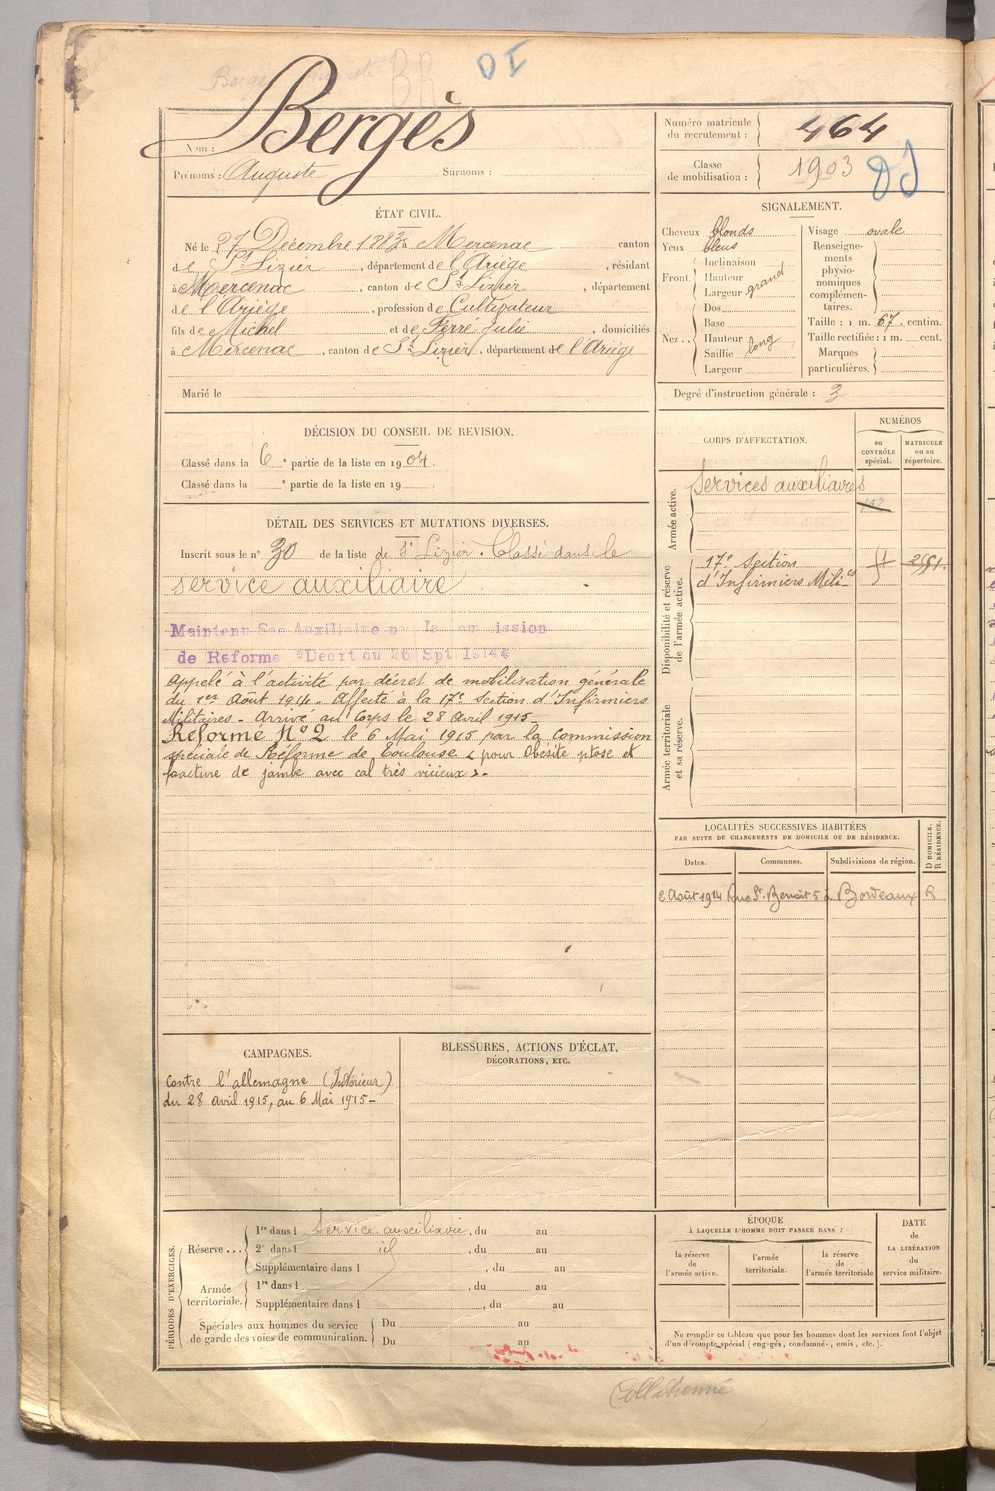 DI
Bergès
Nom :
Prénoms : Auguste Surnoms :
Numéro matricule du recrutement : 464
Classe de mobilisation : 1903
ÉTAT CIVIL.
Né le 27 Décembre 1883 à Mercenac canton
de St Lizier, département de l'Ariège, résidant
à Mercenac, canton de St Lizier, département
de l'Ariège, profession de Cultivateur
fils de Michel et de Ferré Julie, domiciliés
à Mercenac, canton de St Lizier, département de l'Ariège
Marié le
SIGNALEMENT.
Cheveux blonds
Yeux bleus
Front. Inclinaison
Hauteur
Largeur grand
Nez.. Dos
Base
Hauteur
Saillie long
Largeur
Visage ovale
Renseignements physionomiques complémentaires.
Taille : 1 m. 67 centim.
Taille rectifiée : 1 m. cent.
Marques particulières.
Degré d'instruction générale : 3
DÉCISION DU CONSEIL DE REVISION.
Classé dans la 6e partie de la liste en 1904.
Classé dans la e partie de la liste en 19
DÉTAIL DES SERVICES ET MUTATIONS DIVERSES.
Inscrit sous le n° 30 de la liste de St Lizier. Classé dans le
service auxiliaire
Maintenu Sce Auxiliaire
de Reforme Decrt du 26 Spt. 1914
Appelé à l'activité par décret de mobilisation générale
du 1er Août 1914. Affecté à la 17e Section d'Infirmiers
Militaires - Arrivé au Corps le 28 Avril 1915 -
Réformé N° 2 le 6 Mai 1915 par la Commission
spéciale de Réforme de Toulouse « pour Obésité ptose et
fracture de jambe avec cal très vicieux ». -
CORPS D'AFFECTATION.
NUMÉROS
au CONTRÔLE spécial.
MATRICULE ou au répertoire.
Armée active.
Services auxiliaires
Disponibilité et réserve de l'armée active.
17e Section
d'Infirmiers Milires
Armée territoriale et sa réserve.
LOCALITÉS SUCCESSIVES HABITÉES
PAR SUITE DE CHANGEMENTS DE DOMICILE OU DE RÉSIDENCE.
Dates. Communes. Subdivisions de région. D DOMICILE. R RÉSIDENCE.
2 Août 1914 Rue St. Benoit 5 à Bordeaux R
CAMPAGNES.
Contre l'allemagne (Intérieur)
du 28 Avril 1915, au 6 Mai 1915 -
BLESSURES, ACTIONS D'ÉCLAT,
DÉCORATIONS, ETC.
PÉRIODES D'EXERCICES.
Réserve... 1re dans l Service auxiliaire, du au
2e dans l id, du au
Supplémentaire dans l , du au
Armée territoriale. 1re dans l , du au
Supplémentaire dans l , du au
Spéciales aux hommes du service de garde des voies de communication. Du au
Du au
ÉPOQUE
À LAQUELLE L'HOMME DOIT PASSER DANS :
la réserve de l'armée active.
l'armée territoriale.
la réserve de l'armée territoriale
DATE de LA LIBÉRATION du service militaire.
Ne remplir ce tableau que pour les hommes dont les services font l'objet
d'un décompte spécial (engagés, condamnés, omis, etc.).
Collationné